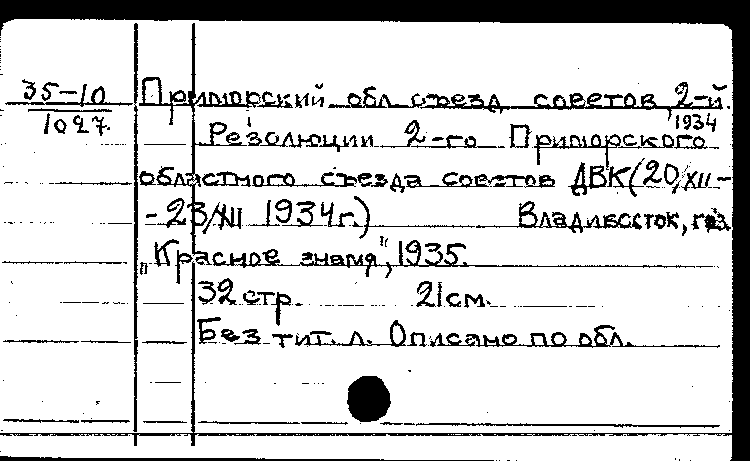 35-10
1027.
Приморский обл. съезд советов, 2-й.
1934
Резолюции 2-го Приморского
областного съезда советов ДВК (20/XII-
-23/XII 1934г.) Владивосток, газ.
„Красное знамя", 1935.
32 стр. 21 см.
Без тит. л. Описано по обл.